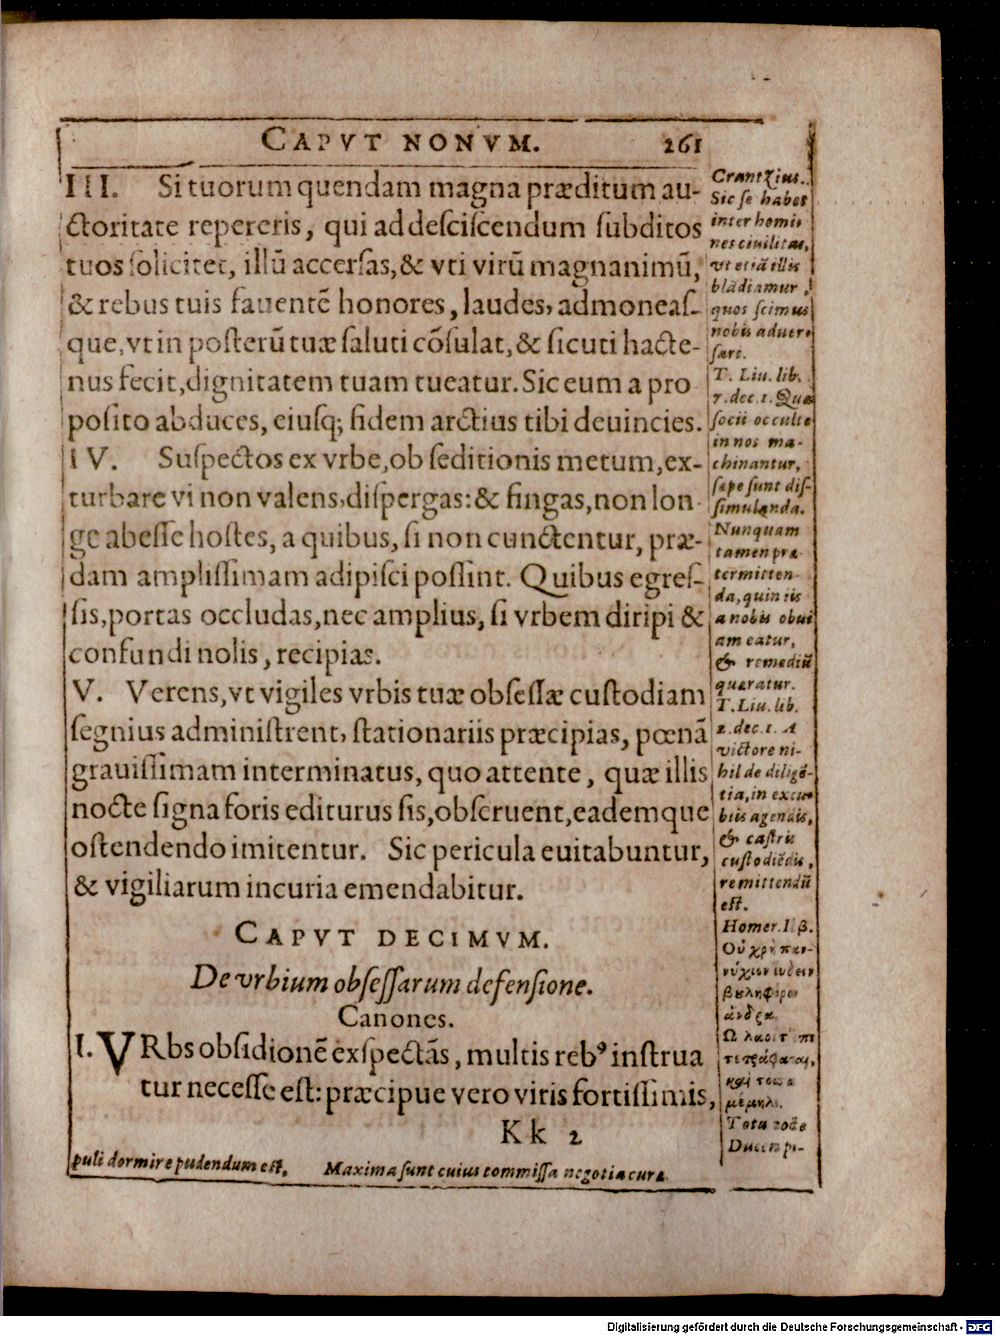 CAPVT NONVM. 261
III. Si tuorum quendam magna præditum au-
ctoritate repereris, qui ad desciscendum subditos
tuos solicitet, illũ accersas, & vti virũ magnanimũ,
& rebus tuis fauentẽ honores, laudes, admoneas-
que, vt in posterũ tuæ saluti cõsulat, & sicuti hacte-
nus fecit, dignitatem tuam tueatur. Sic eum a pro
posito abduces, eiusq; fidem arctius tibi deuincies.
IV. Suspectos ex vrbe, ob seditionis metum, ex-
turbare vi non valens, dispergas: & fingas, non lon
ge abesse hostes, a quibus, si non cunctentur, præ-
dam amplissimam adipisci possint. Quibus egres-
sis, portas occludas, nec amplius, si vrbem diripi &
confundi nolis, recipias.
V. Verens, vt vigiles vrbis tuæ obsessæ custodiam
segnius administrent, stationariis præcipias, pœnã
grauissimam interminatus, quo attente, quæ illis
nocte signa foris editurus sis, obseruent, eademque
ostendendo imitentur. Sic pericula euitabuntur,
& vigiliarum incuria emendabitur.
CAPVT DECIMVM.
De vrbium obsessarum defensione.
Canones.
I. VRbs obsidionẽ exspectãs, multis rebꝰ instrua
tur necesse est: præcipue vero viris fortissimis,
Kk 2
Crantzius.
Sic se habet
inter homi-
nes ciuilitas,
vt etiã illis
blãdiamur,
quos scimus
nobis aduer-
sari.
T. Liu. lib.
7. dec. 1. Quæ
socii occulte
in nos ma-
chinantur,
sæpe sunt dis-
simulanda.
Nunquam
tamen præ-
termitten-
da, quin iis
a nobis obui
am eatur,
& remediũ
quæratur.
T. Liu. lib.
2. dec. 1. A
victore ni-
hil de diligẽ-
tia, in excu-
biis agendis,
& castris
custodiẽdis,
remittendũ
est.
Homer. Il. β.
Οὐ χρὴ παν-
νύχιον εὕδειν
βουληφόρον
ἄνδρα
Ω λαοί τ' ἐπι
τετράφαται,
καὶ τόσσα
μέμηλε.
Tota nocte
Ducem po-
puli dormire pudendum est, Maxima sunt cuius commissa negotia curæ.
Digitalisierung gefördert durch die Deutsche Forschungsgemeinschaft - DFG